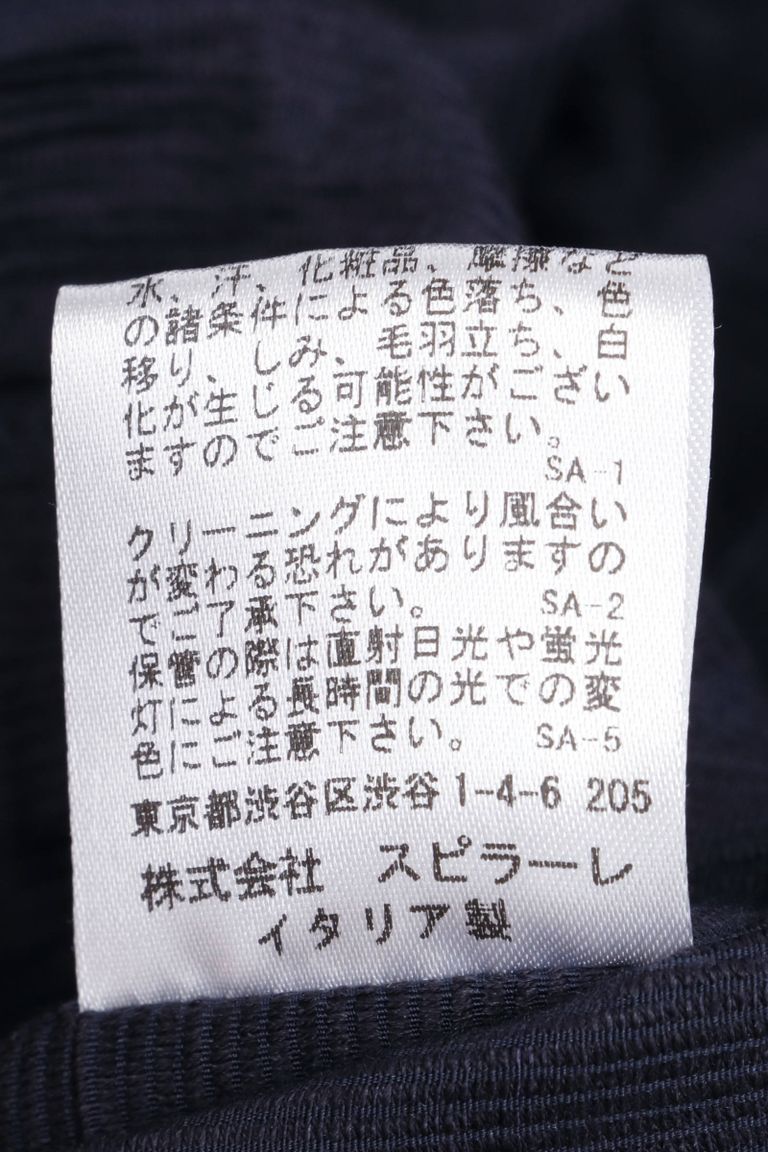 水、汗、化粧品、摩擦など
の諸条件による色落ち、色
移り、しみ、毛羽立ち、白
化が生じる可能性がござい
ますのでご注意下さい。
SA-1
クリーニングにより風合い
が変わる恐れがありますの
でご了承下さい。 SA-2
保管の際は直射日光や蛍光
灯による長時間の光での変
色にご注意下さい。 SA-5
東京都渋谷区渋谷 1-4-6 205
株式会社 スピラーレ
イタリア製